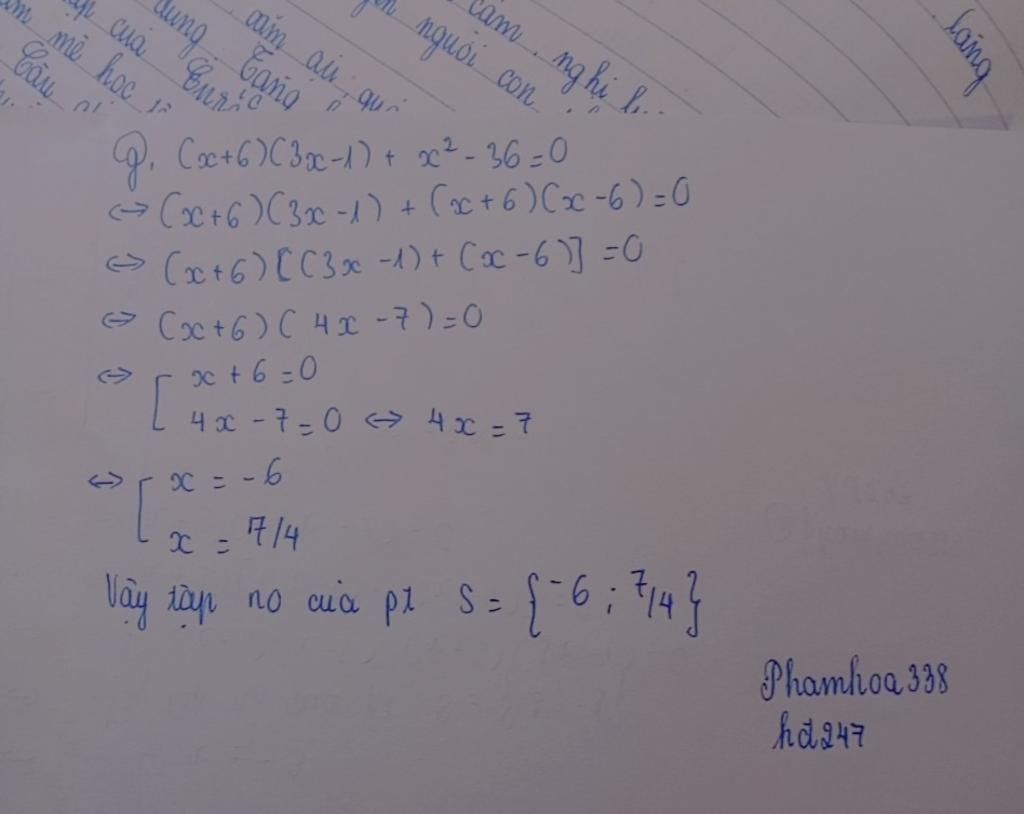 cảm nghĩ
người con
cảm
của
mê học
Câu
Lăng
g, (x+6)(3x-1) + x² - 36 = 0
⇔ (x+6)(3x-1) + (x+6)(x-6) = 0
⇔ (x+6)[(3x-1)+(x-6)] = 0
⇔ (x+6)(4x-7)=0
⇔ [ x+6=0
4x-7=0 ⇔ 4x=7
⇔ [ x = -6
x = 7/4
Vậy tập no của pt S = {-6; 7/4}
Phamhoa338
hđ247